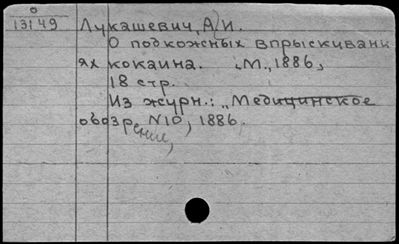 0
13149 Лукашевич, А. И.
О подкожных впрыскивани
ях кокаина. М., 1886,
18 стр.
Из журн.: „Медицинское
обозрение, N10, 1886.